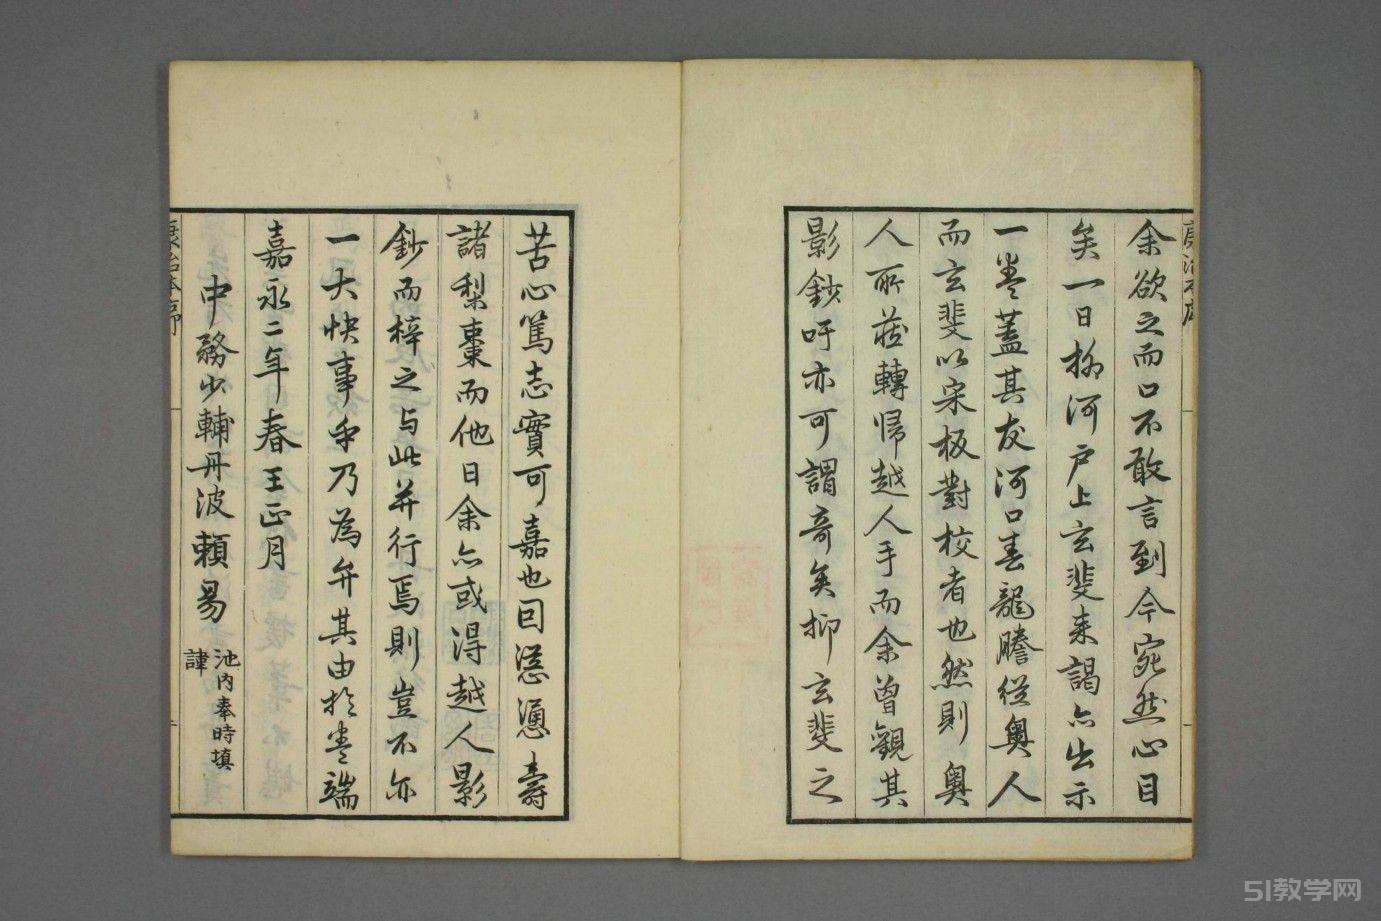 余欲之而口不敢言到今宛然心目
矣一日柳河戶上玄斐来謁亦出示
一卷蓋其友河口春龍謄從奧人
而玄斐以宋板對校者也然則奧
人所藏轉歸越人手而余曾觀其
影鈔吁亦可謂奇矣抑玄斐之
苦心篤志實可嘉也因慫慂壽
諸梨棗而他日余亦或得越人影
鈔而梓之与此并行焉則豈不亦
一大快事乎乃為弁其由於卷端
嘉永二年春王正月
中務少輔丹波賴易
池內奉時填
諱
康治本序
51教学网